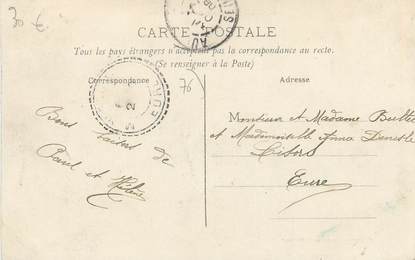 30 €
CARTE POSTALE
Tous les pays étrangers n'acceptent pas la correspondance au recto.
(Se renseigner à la Poste)
Correspondance
76
Bons baisers de
Paul et Hélène
Adresse
Monsieur et Madame
et Mademoiselle Anna
Lisors
Eure